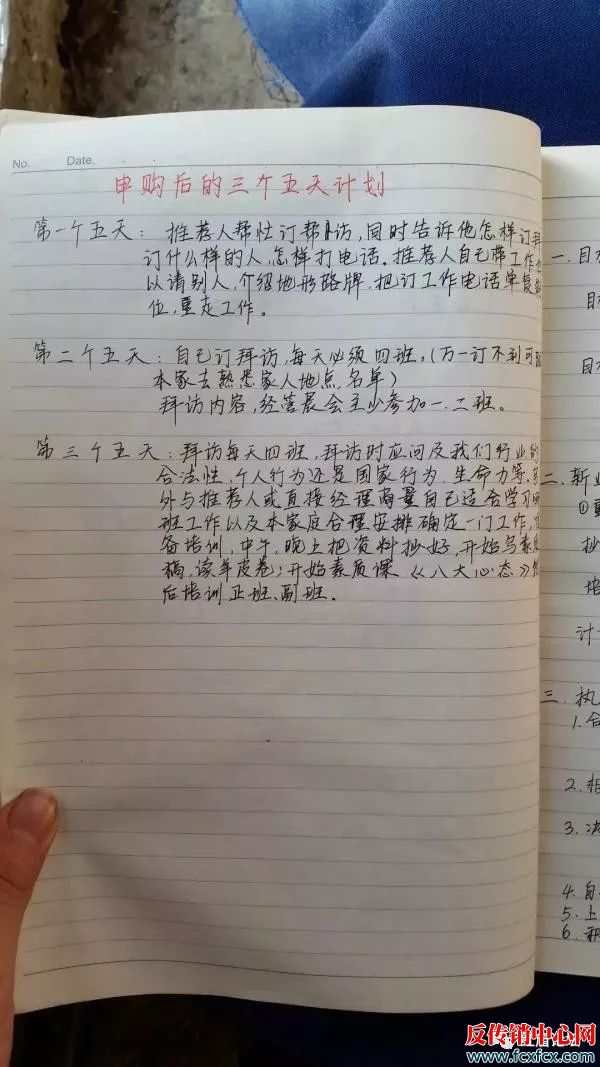 No. Date.
申购后的三个五天计划
第一个五天：推荐人帮忙订帮访，同时告诉他怎样订拜
订什么样的人，怎样打电话。推荐人自己带工作
以请别人，介绍地形路牌，把订工作电话单
位，重走工作。
第二个五天：自己订拜访，每天必须四班，（万一订不到可
本家去熟悉家人地点，名单）
拜访内容，经营晨会至少参加一、二班。
第三个五天：拜访每天四班，拜访时应问及我们行业的
合法性，个人行为还是国家行为，生命力等，
外与推荐人或直接经理商量自己适合学习
班工作以及本家庭合理安排确定一门工作，
备培训，中午，晚上把资料抄好，开始写素质
稿，读羊皮卷；开始素质课《八大心态》
后培训正班、副班。
一.目
目
目
二.新业
①
抄
培
计
三.执
1.合
2.相
3.决
4.自
5.上
6.
反传销中心网
www.fcxfcx.com